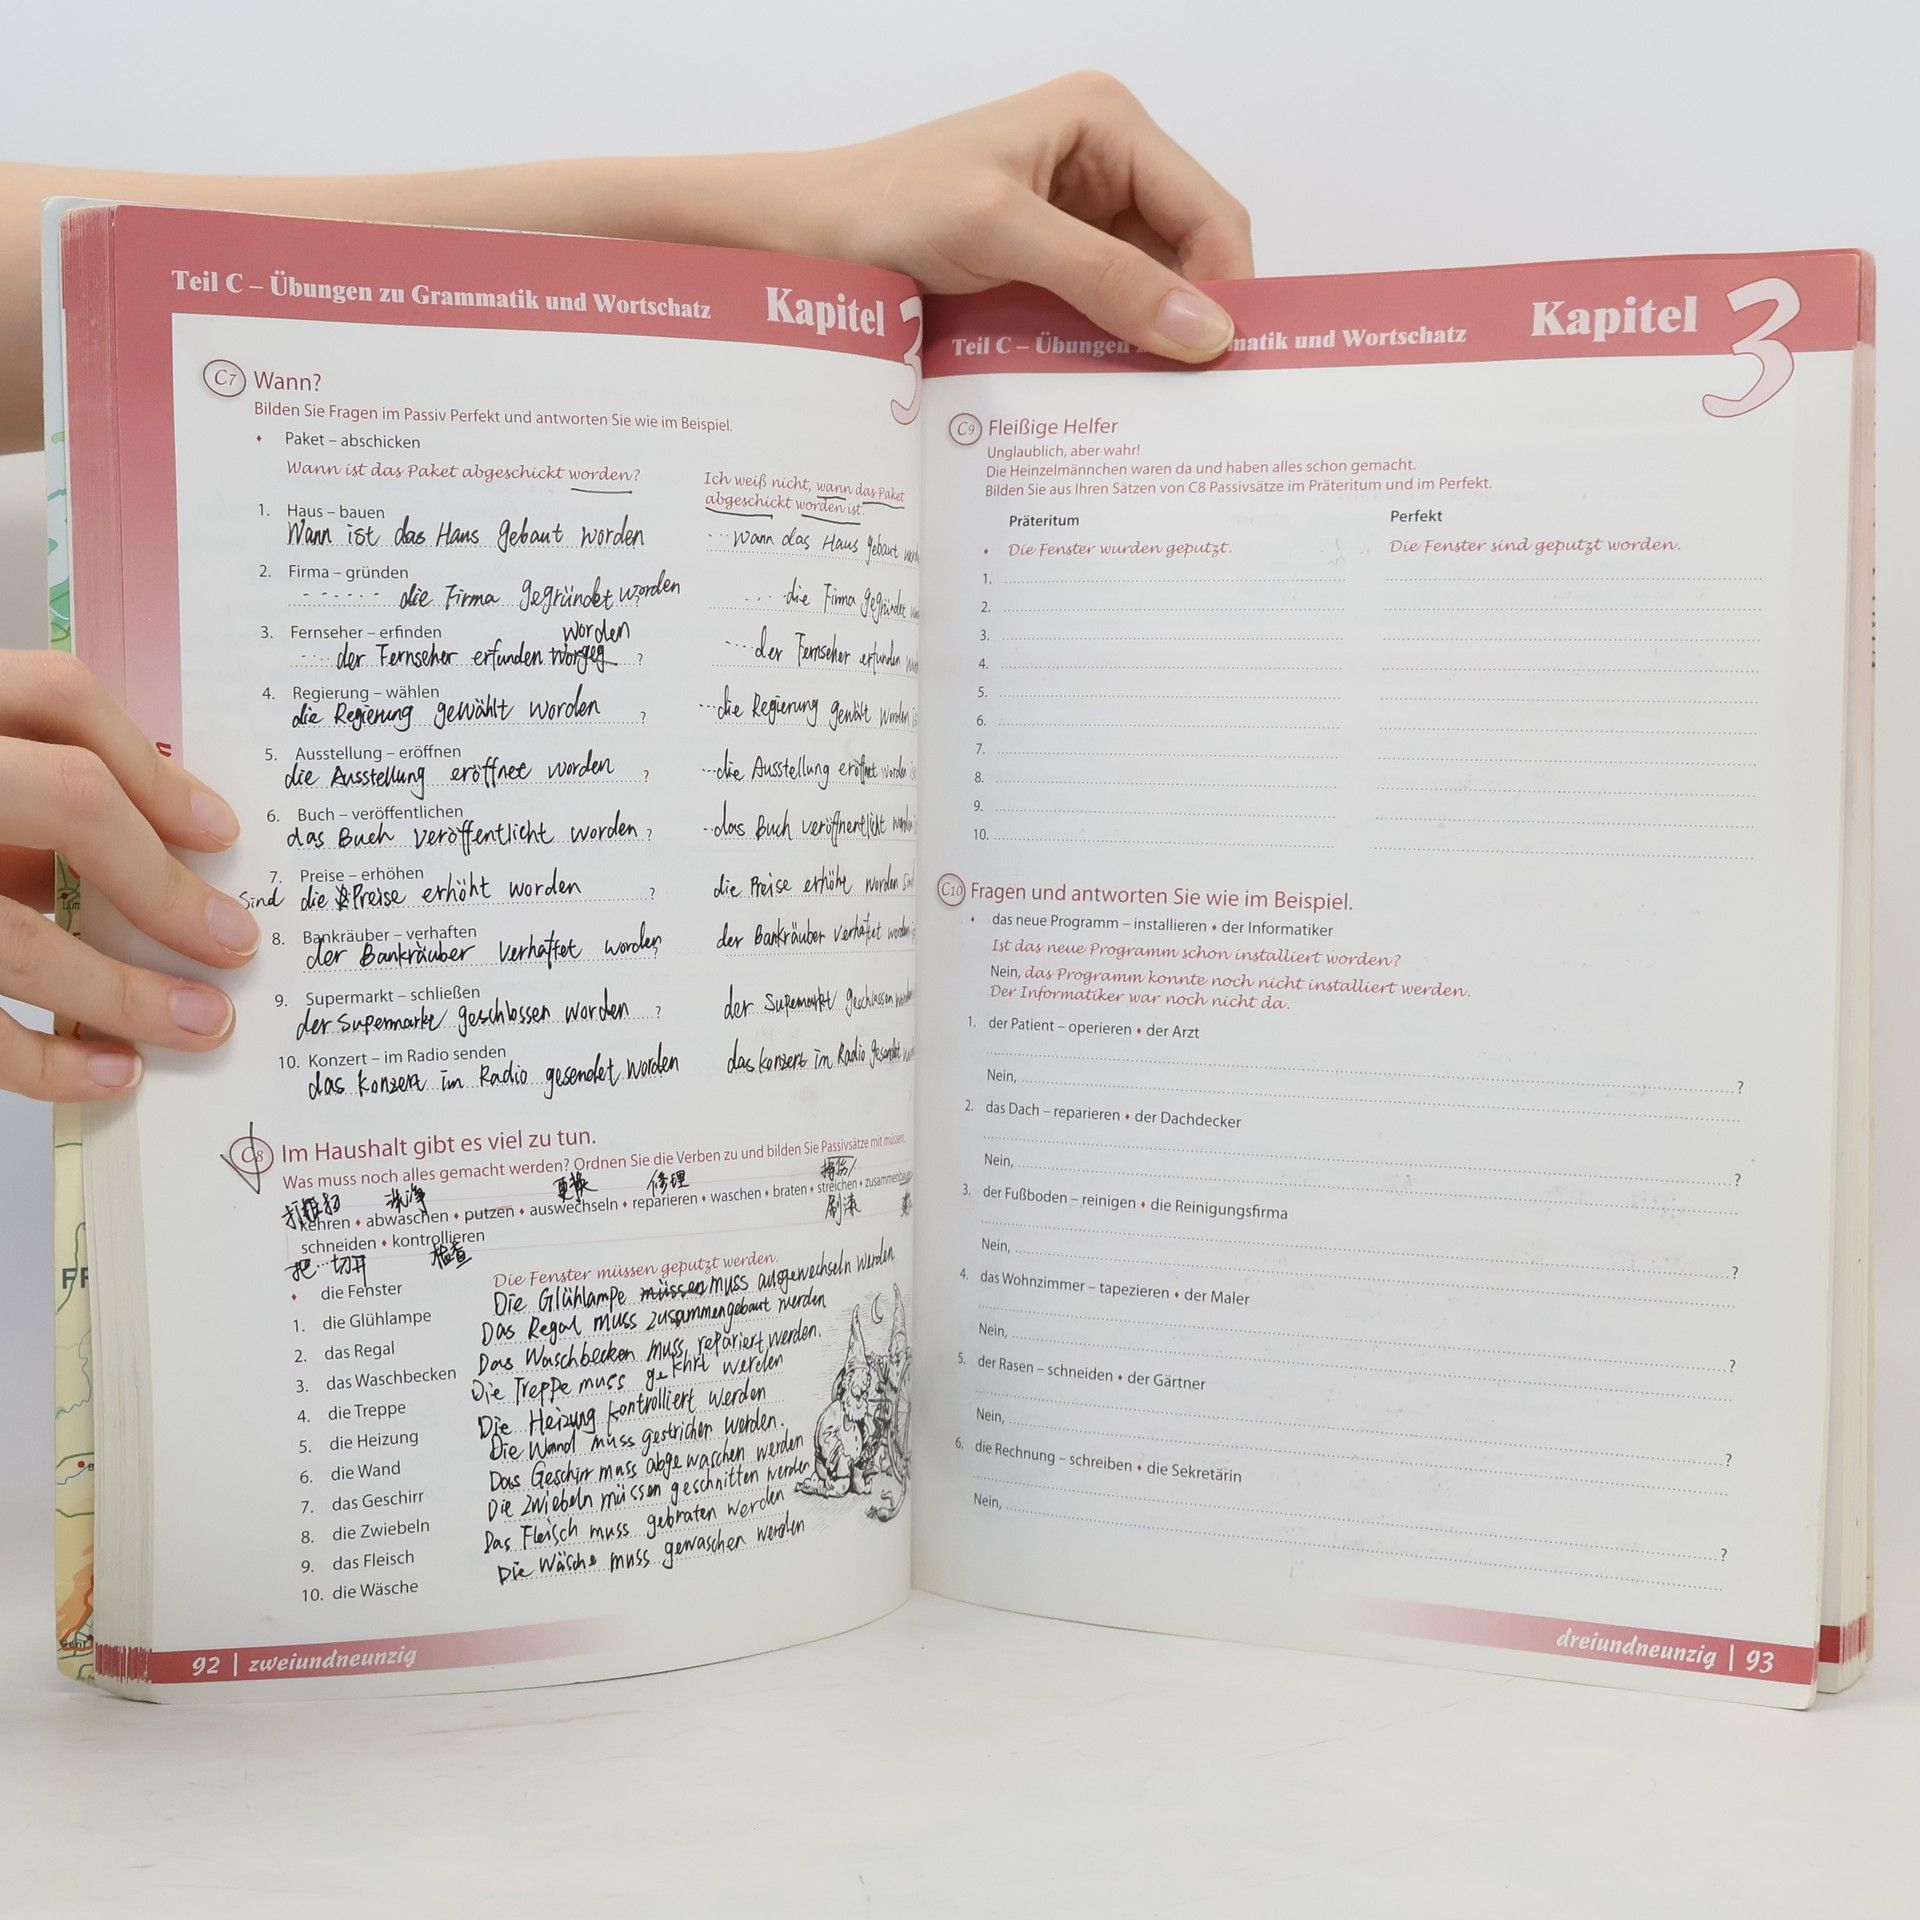 Teil C – Übungen zu Grammatik und Wortschatz
Kapitel 3
C7 Wann?
Bilden Sie Fragen im Passiv Perfekt und antworten Sie wie im Beispiel.
♦ Paket – abschicken
Wann ist das Paket abgeschickt worden?
Ich weiß nicht, wann das Paket
abgeschickt worden ist.
1. Haus – bauen
Wann ist das Haus gebaut worden
... wann das Haus gebaut
2. Firma – gründen
------ die Firma gegründet worden
... die Firma gegründet
3. Fernseher – erfinden
worden
.... der Fernseher erfunden ?
... der Fernseher erfunden
4. Regierung – wählen
die Regierung gewählt worden ?
... die Regierung gewält worden
5. Ausstellung – eröffnen
die Ausstellung eröffnet worden ?
... die Ausstellung eröffnet worden
6. Buch – veröffentlichen
das Buch veröffentlicht worden ?
.. das Buch veröffnentlicht
7. Preise – erhöhen
Sind die Preise erhöht worden ?
die Preise erhöht worden sind
8. Bankräuber – verhaften
der Bankräuber verhaftet worden ?
der Bankräuber verhaftet
9. Supermarkt – schließen
der Supermarkt geschlossen worden ?
der Supemarkt geschlossen
10. Konzert – im Radio senden
das Konzert im Radio gesendet worden
das Konzert im Radio gesendet
C8 Im Haushalt gibt es viel zu tun.
Was muss noch alles gemacht werden? Ordnen Sie die Verben zu und bilden Sie Passivsätze mit müssen.
洗净 更换 修理
kehren ♦ abwaschen ♦ putzen ♦ auswechseln ♦ reparieren ♦ waschen ♦ braten ♦ streichen ♦ zusammenbauen
刷漆
schneiden ♦ kontrollieren
把…切开 检查
♦ die Fenster
Die Fenster müssen geputzt werden.
1. die Glühlampe
Die Glühlampe müssen muss ausgewechseln werden
2. das Regal
Das Regal muss zusammengebaut werden
3. das Waschbecken
Das Waschbecken muss repariert werden.
4. die Treppe
Die Treppe muss gekhrt werden
5. die Heizung
Die Heizung kontrolliert werden
6. die Wand
Die Wand muss gestrichen werden.
7. das Geschirr
Das Geschirr muss abgewaschen werden
8. die Zwiebeln
Die Zwiebeln müssen geschnitten werden
9. das Fleisch
Das Fleisch muss gebraten werden
10. die Wäsche
Die Wäsche muss gewaschen werden
92 | zweiundneunzig
Teil C – Übungen matik und Wortschatz
Kapitel 3
C9 Fleißige Helfer
Unglaublich, aber wahr!
Die Heinzelmännchen waren da und haben alles schon gemacht.
Bilden Sie aus Ihren Sätzen von C8 Passivsätze im Präteritum und im Perfekt.
Präteritum Perfekt
♦ Die Fenster wurden geputzt. Die Fenster sind geputzt worden.
1.
2.
3.
4.
5.
6.
7.
8.
9.
10.
C10 Fragen und antworten Sie wie im Beispiel.
♦ das neue Programm – installieren ♦ der Informatiker
Ist das neue Programm schon installiert worden?
Nein, das Programm konnte noch nicht installiert werden.
Der Informatiker war noch nicht da.
1. der Patient – operieren ♦ der Arzt
?
Nein,
2. das Dach – reparieren ♦ der Dachdecker
?
Nein,
3. der Fußboden – reinigen ♦ die Reinigungsfirma
?
Nein,
4. das Wohnzimmer – tapezieren ♦ der Maler
?
Nein,
5. der Rasen – schneiden ♦ der Gärtner
?
Nein,
6. die Rechnung – schreiben ♦ die Sekretärin
?
Nein,
dreiundneunzig | 93